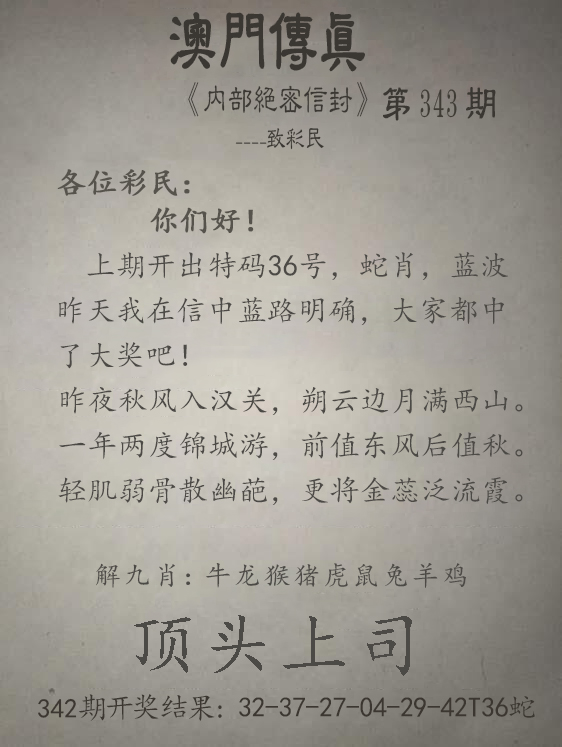 澳門傳真
《内部絕密信封》第343期
----致彩民
各位彩民：
你们好！
上期开出特码36号，蛇肖，蓝波
昨天我在信中蓝路明确，大家都中
了大奖吧！
昨夜秋风入汉关，朔云边月满西山。
一年两度锦城游，前值东风后值秋。
轻肌弱骨散幽葩，更将金蕊泛流霞。
解九肖：牛龙猴猪虎鼠兔羊鸡
顶头上司
342期开奖结果：32-37-27-04-29-42T36蛇